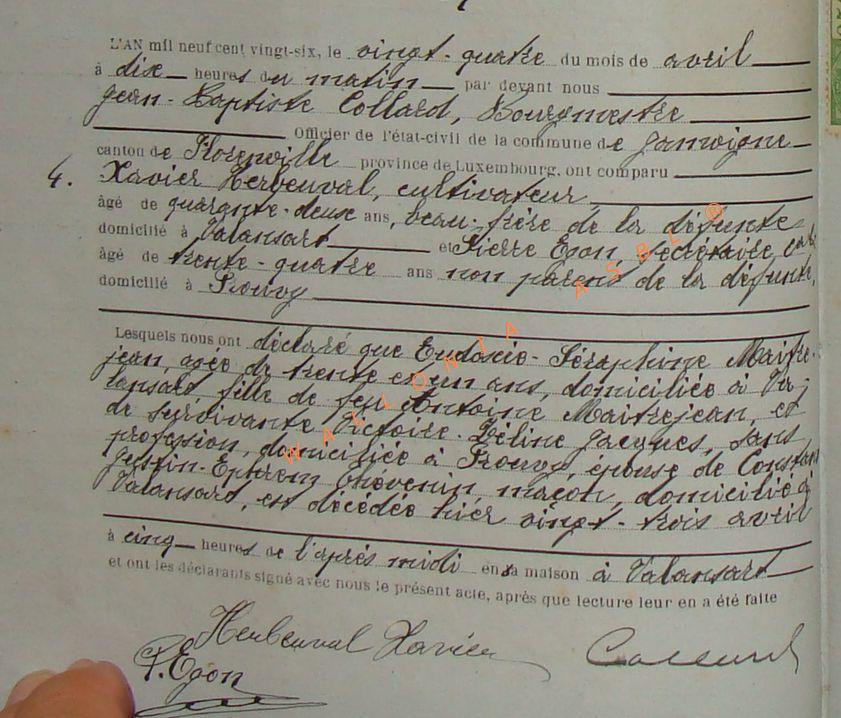 L'AN mil neuf cent vingt-six, le vingt-quatre du mois de avril
à dix heures du matin par devant nous
Jean-Baptiste Collard, Bourgmestre
Officier de l'état-civil de la commune de Jamoigne
canton de Florenville province de Luxembourg, ont comparu
4. Xavier Herbeuval, cultivateur
âgé de quarante-deux ans, beau-frère de la défunte
domicilié à Valansart et Pierre Egon, secrétaire
âgé de trente-quatre ans non parent de la défunte,
domicilié à Prouvy
Lesquels nous ont déclaré que Eudoxie-Séraphine Maitre-
jean, agée de trente et un ans, domiciliée à Va-
lansart, fille de feu Antoine Maitrejean, et
de survivante Victoire-Zéline Jacques, sans
profession, domiciliée à Prouvy, épouse de Constant
Justin-Ephrem Thévenin, maçon, domicilié à
Valansart, est décédée hier vingt-trois avril
à cinq heures de l'après midi en sa maison à Valansart
et ont les déclarants signé avec nous le présent acte, après que lecture leur en a été faite
Herbeuval Xavier Collard
P. Egon
WALLONIA ASBL ©